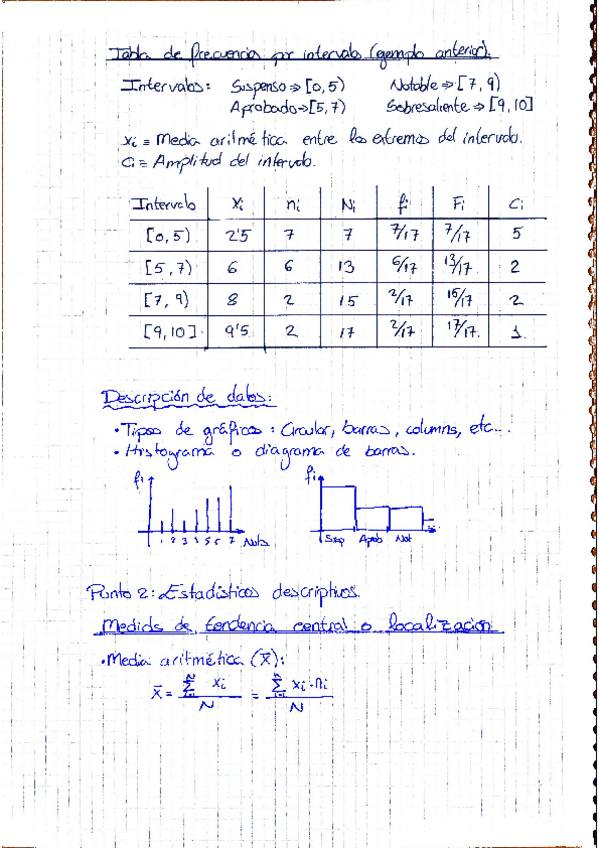 Tabla de frecuencia por intervalo (ejemplo anterior).
Intervalos: Suspenso ⇒ [0,5) Notable ⇒ [7,9)
Aprobado → [5,7) Sobresaliente ⇒ [9,10]
xi ≡ Media aritmética entre los extremos del intervalo.
Ci ≡ Amplitud del intervalo.
Intervalo xi ni Ni fi Fi Ci
[0,5) 2'5 7 7 7/17 7/17 5
[5,7) 6 6 13 6/17 13/17 2
[7,9) 8 2 15 2/17 15/17 2
[9,10] 9'5 2 17 2/17 17/17 1
Descripción de datos:
• Tipos de gráficos: Circular, barras, columns, etc...
• Histograma o diagrama de barras.
fi fi
1 2 3 4 5 6 7 Nota Susp Aprob Not
Punto 2: Estadísticos descriptivos.
Medids de tendencia central o localización
• Media aritmética (x̄):
x̄ = Σ xi / N = Σ xi·ni / N